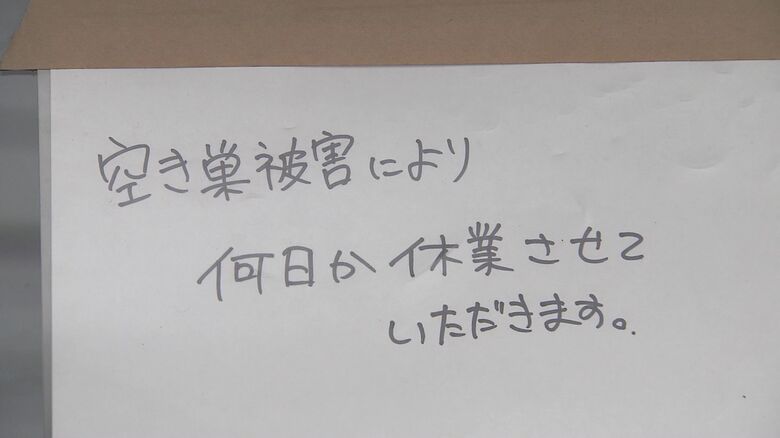 空き巣被害により
何日か休業させて
いただきます。